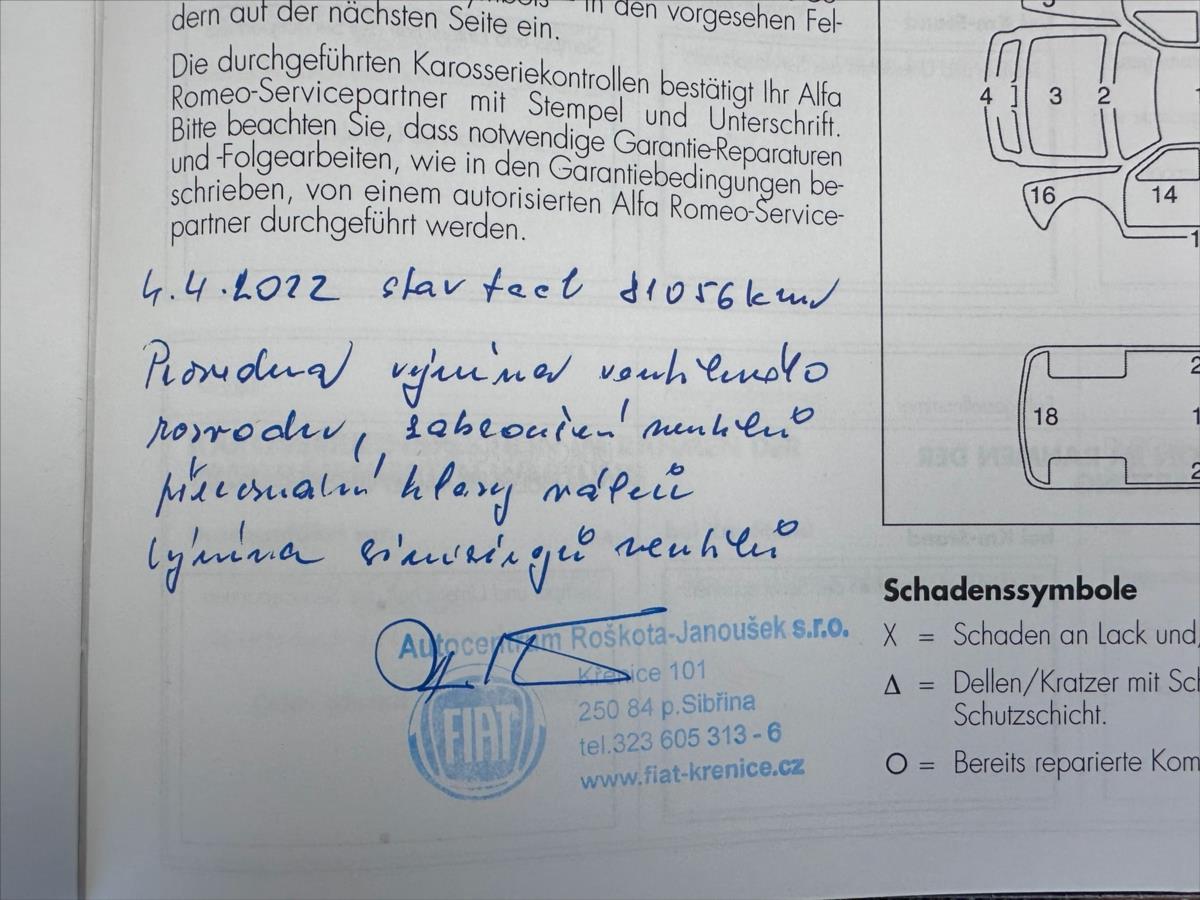 in den vorgesehen Fel-
dern auf der nächsten Seite ein.
Die durchgeführten Karosseriekontrollen bestätigt Ihr Alfa
Romeo-Servicepartner mit Stempel und Unterschrift.
Bitte beachten Sie, dass notwendige Garantie-Reparaturen
und -Folgearbeiten, wie in den Garantiebedingungen be-
schrieben, von einem autorisierten Alfa Romeo-Service-
partner durchgeführt werden.
4.4.2022 stav tach 81056km
Provedena výměna ventilového
rozvodu, zabroušení ventilů
přesouzení hlavy válců
výměna simeringů ventilů
Autocentrum Roškota-Janoušek s.r.o.
Křenice 101
250 84 p.Sibřina
tel.323 605 313 - 6
www.fiat-krenice.cz
FIAT
4 3 2
16 14
18
Schadenssymbole
X = Schaden an Lack und
Δ = Dellen/Kratzer mit Sch
Schutzschicht.
O = Bereits reparierte Kom